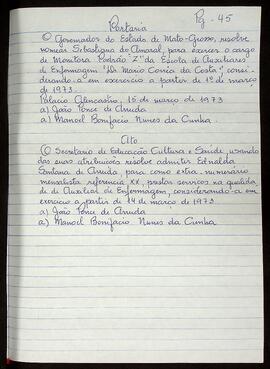 Pg - 45
Portaria
O Governador do Estado de Mato-Grosso, resolve
nomear Sebastiana do Amaral, para exercer o cargo
de Monitora Padrão "Z" da Escola de Auxiliares
de Enfermagem "Dr Mario Corrêa da Costa", consi-
derando-a em exercício a partir de 1º de março
de 1973.
Palacio Alencastro, 15 de março de 1973
a) João Ponce de Arruda
a) Manoel Bonifacio Nunes da Cunha.
Ato
O Secretario de Educação Cultura e Saúde, usando
das suas atribuições resolve admitir Ednalda
Santana de Arruda, para como extra-numerário
mensalista referencia XX, prestar serviços na qualida
de de Auxiliar de Enfermagem, considerando-a em
exercício a partir de 14 de março de 1973
a) João Ponce de Arruda
a) Manoel Bonifacio Nunes da Cunha